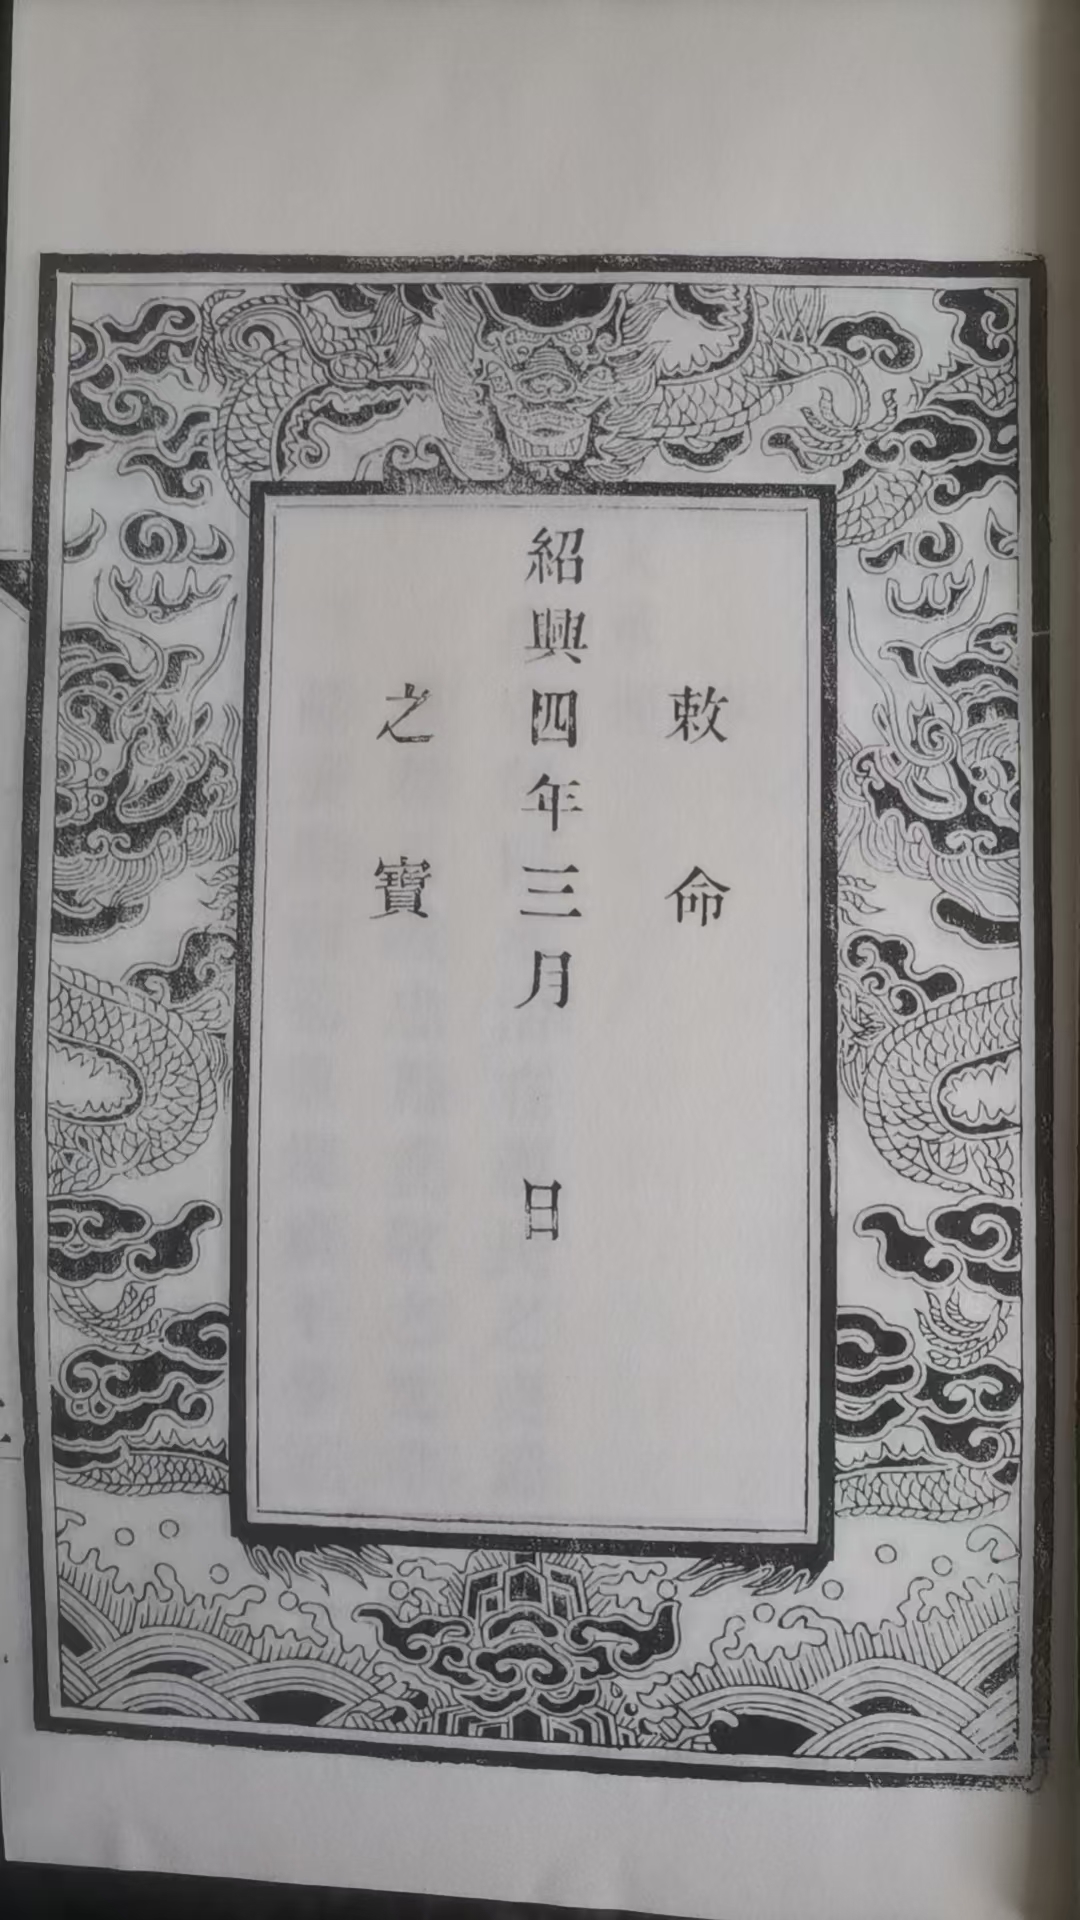 敕命
紹興四年三月　日
之寶